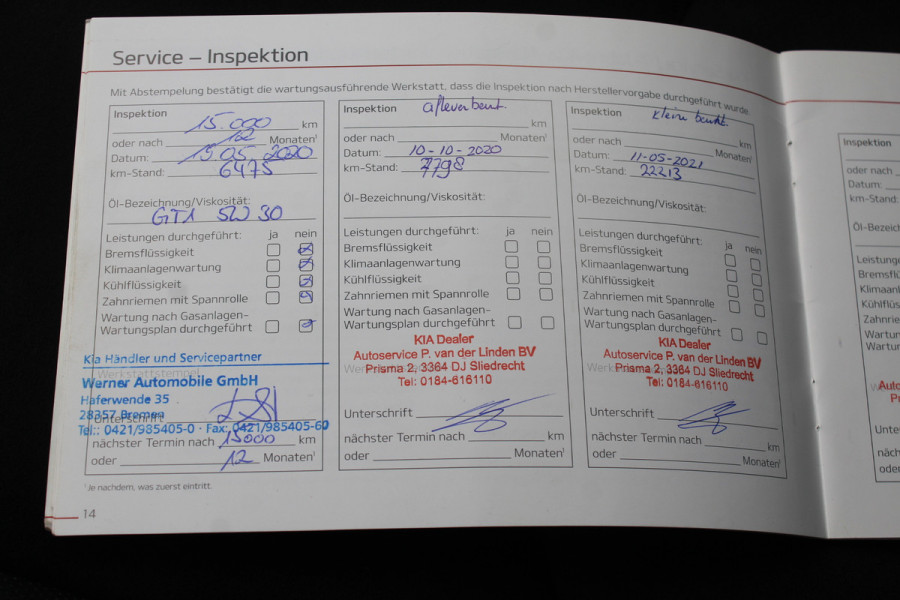 Service – Inspektion
Mit Abstempelung bestätigt die wartungsausführende Werkstatt, dass die Inspektion nach Herstellervorgabe durchgeführt wurde.
Inspektion
15.000 km
oder nach 12 Monaten¹
Datum: 15.05.2020
km-Stand: 6475
Öl-Bezeichnung/Viskosität:
GT1 5W30
Leistungen durchgeführt: ja nein
Bremsflüssigkeit
Klimaanlagenwartung
Kühlflüssigkeit
Zahnriemen mit Spannrolle
Wartung nach Gasanlagen-
Wartungsplan durchgeführt
Kia Händler und Servicepartner
Werkstattstempel
Werner Automobile GmbH
Haferwende 35
28357 Bremen
Unterschrift
Tel.: 0421/985405-0 · Fax: 0421/985405-60
nächster Termin nach 15000 km
oder 12 Monaten¹
Inspektion afleverbeurt
km
oder nach Monaten¹
Datum: 10-10-2020
km-Stand: 7798
Öl-Bezeichnung/Viskosität:
Leistungen durchgeführt: ja nein
Bremsflüssigkeit
Klimaanlagenwartung
Kühlflüssigkeit
Zahnriemen mit Spannrolle
Wartung nach Gasanlagen-
Wartungsplan durchgeführt
KIA Dealer
Autoservice P. van der Linden BV
Prisma 2, 3364 DJ Sliedrecht
Tel: 0184-616110
Unterschrift
nächster Termin nach km
oder Monaten¹
Inspektion kleine beurt.
km
oder nach Monaten¹
Datum: 11-05-2021
km-Stand: 22213
Öl-Bezeichnung/Viskosität:
Leistungen durchgeführt: ja nein
Bremsflüssigkeit
Klimaanlagenwartung
Kühlflüssigkeit
Zahnriemen mit Spannrolle
Wartung nach Gasanlagen-
Wartungsplan durchgeführt
KIA Dealer
Autoservice P. van der Linden BV
Prisma 2, 3364 DJ Sliedrecht
Tel: 0184-616110
Unterschrift
nächster Termin nach km
oder Monaten¹
¹ Je nachdem, was zuerst eintritt.
14
Inspektion
oder nach
Datum:
km-Stand: